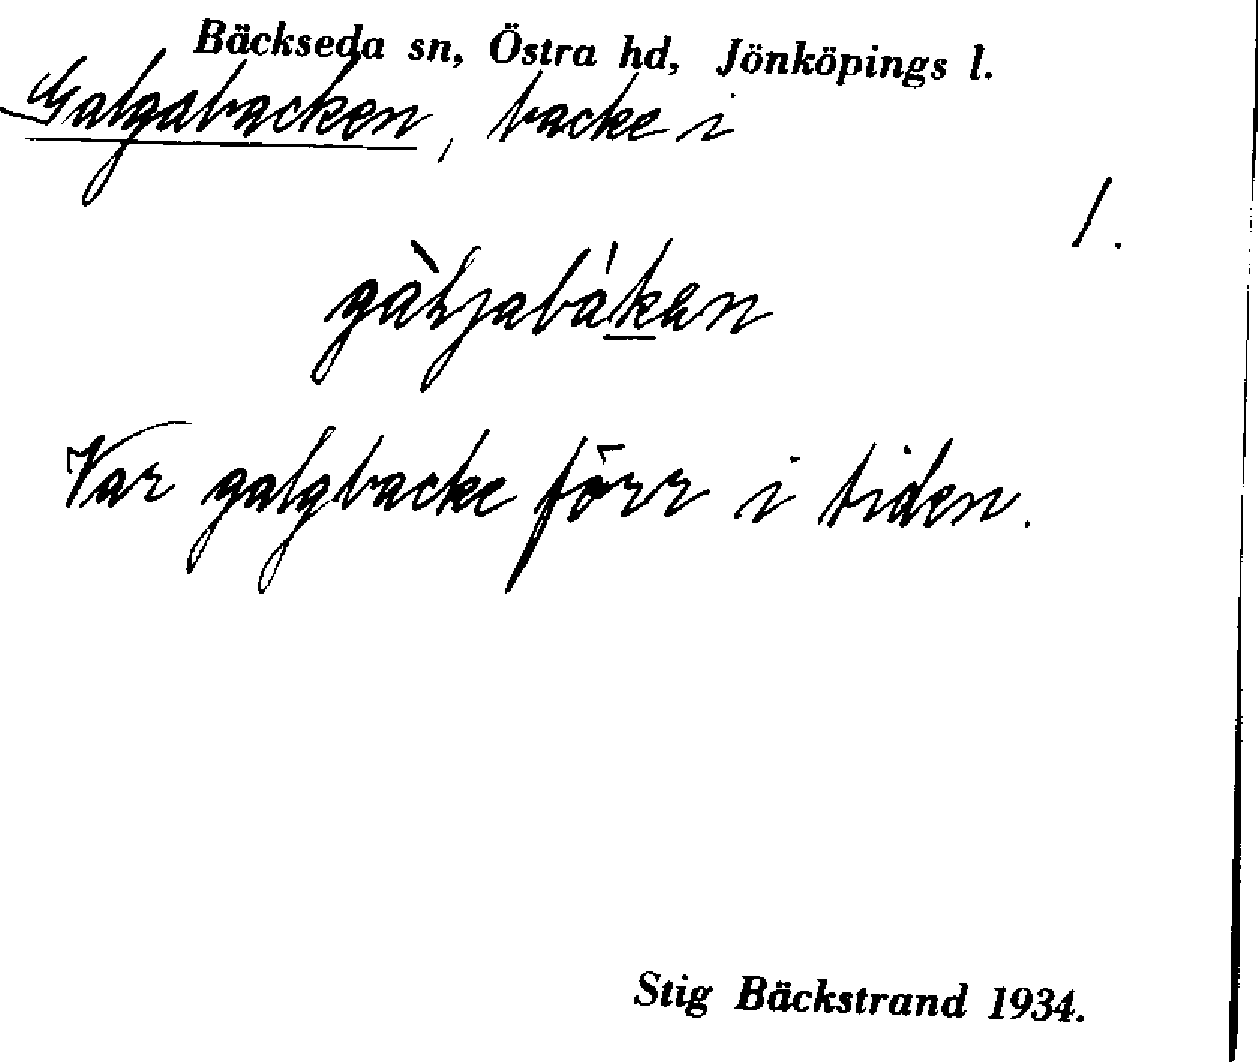 Bäckseda sn, Östra hd, Jönköpings l.
Galgabacken, backe i
1.
gàljabákan
Var galgbacke förr i tiden.
Stig Bäckstrand 1934.